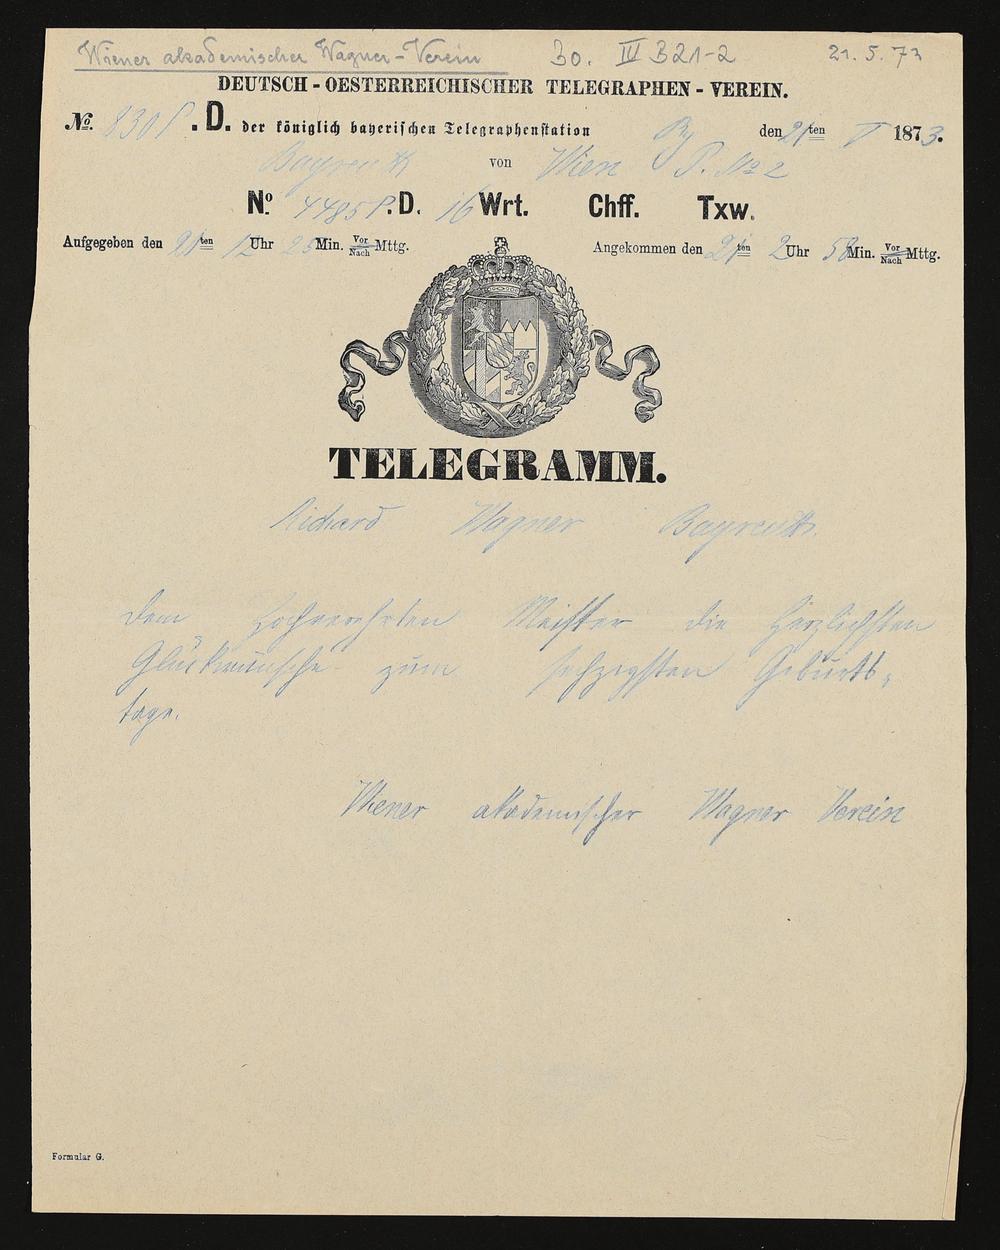 Wiener akademischer Wagner-Verein 30. IV B21-2 21.5.73
DEUTSCH-OESTERREICHISCHER TELEGRAPHEN-VEREIN.
No. 830 P. D. der königlich bayerischen Telegraphenstation By den 21ten V 1873.
Bayreuth von Wien P. No 2
No. 4485 P. D. 16 Wrt. Chff. Txw.
Aufgegeben den 21ten 12 Uhr 25 Min. Vor Nach Mttg. Angekommen den 21ten 2 Uhr 58 Min. Vor Nach Mttg.
TELEGRAMM.
Richard Wagner Bayreuth.
Dem Hochverehrten Meister die Herzlichsten
Glückwünsche zum sechzigsten Geburts-
tage.
Wiener akademischer Wagner Verein
Formular G.